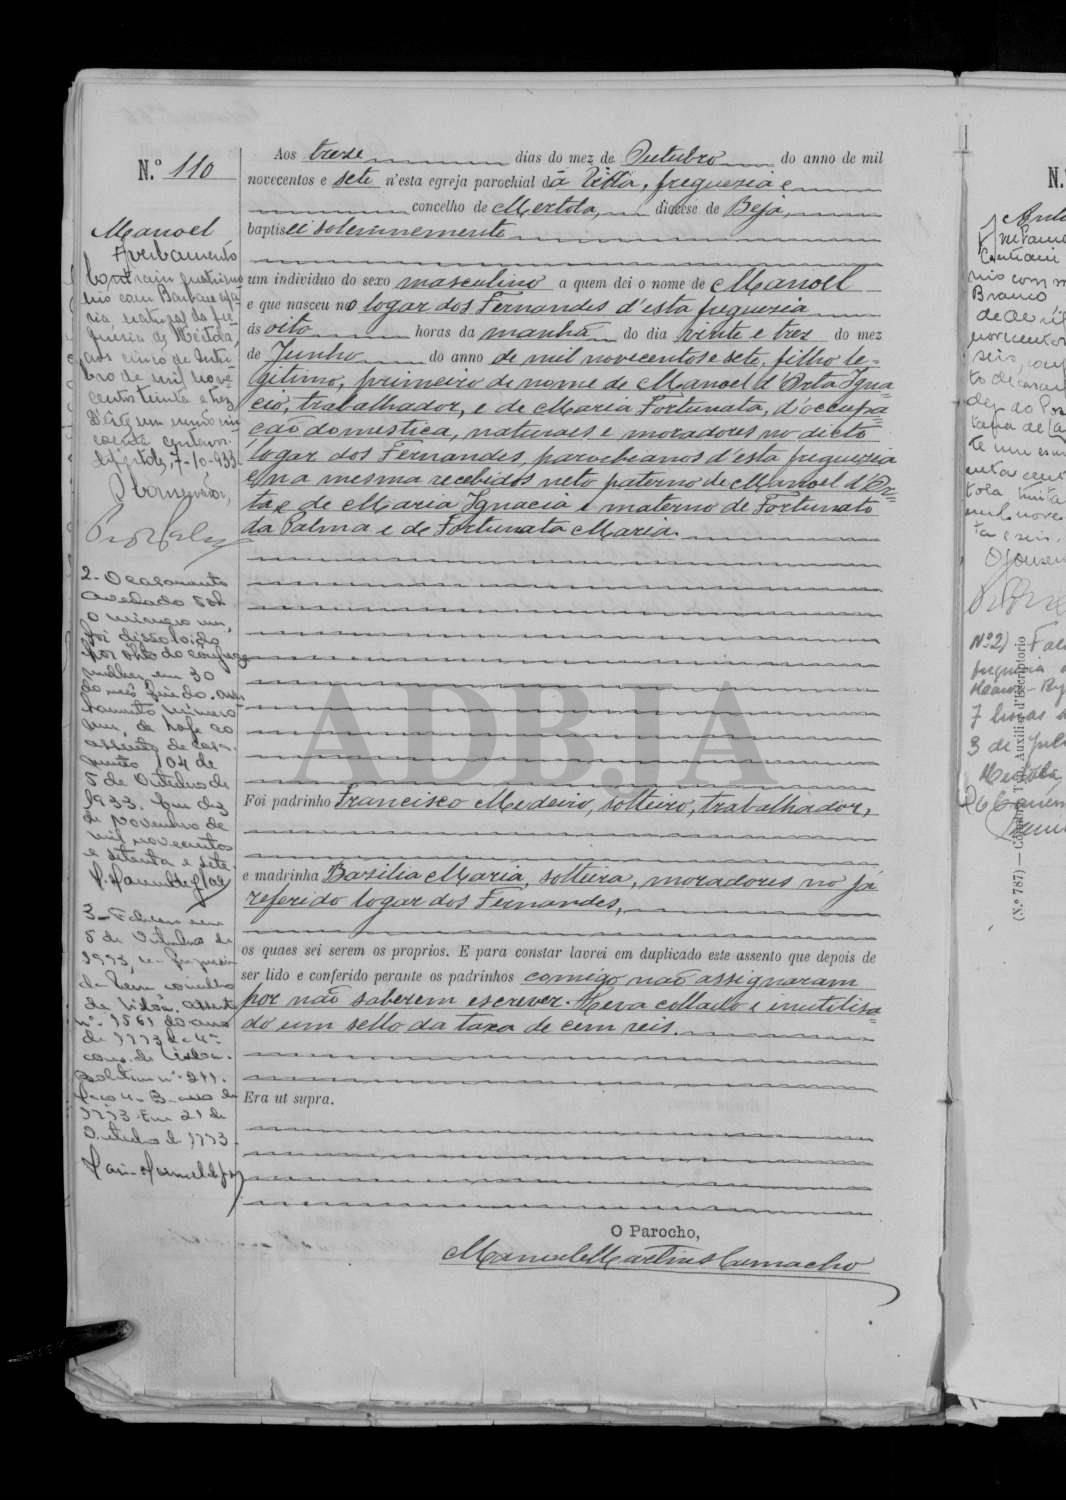 N.º 110
Manoel
Averbamento
Contraiu matrimo
nio com Barbara Ma
ria natural da fre
guesia de Mértola,
aos cinco de Outu
bro de mil nove
centos trinta e trez
Mértola, 7-10-933
O Conservador,
2 - O casamento
averbado sob
o número um,
foi dissolvido
por óbito do cônjuge
mulher em 30
do mês findo.
numero
um, de hoje ao
assento de casa
mento 104 de
5 de Outubro de
1933. Em dez
de novembro de
mil novecentos
e setenta e sete.
3 - Faleceu em
5 de Outubro de
1993, na freguesia
de concelho
de Lisboa. Assento
nº 1561 do ano
de 1993 da 4ª
cons. de Lisboa.
Boletim nº 211.
Maço 4-B ano de
1993. Em 21 de
Outubro de 1993.
Aos treze dias do mez de Outubro do anno de mil
novecentos e sete n'esta egreja parochial da Villa, freguezia e
concelho de Mertola, diocese de Beja,
baptisei solemnemente
um individuo do sexo masculino a quem dei o nome de Manoel
e que nasceu no logar dos Fernandes d'esta freguezia
ás oito horas da manhã do dia vinte e trez do mez
de Junho do anno de mil novecentos e sete, filho le=
gitimo, primeiro de nome de Manoel d'Orta Igna=
cio, trabalhador, e de Maria Fortunata, d'occupa=
cão domestica, naturaes e moradores no dicto
logar dos Fernandes, parochianos d'esta freguezia
e na mesma recebidos neto paterno de Manoel d'Or=
ta e de Maria Ignacia e materno de Fortunato
da Palma e de Fortunata Maria.
Foi padrinho Francisco Medeiro, solteiro, trabalhador,
e madrinha Bazilia Maria, solteira, moradores no já
referido logar dos Fernandes,
os quaes sei serem os proprios. E para constar lavrei em duplicado este assento que depois de
ser lido e conferido perante os padrinhos comigo não assignaram
por não saberem escrever. Leva collado e inutilisa=
do um sello da taxa de cem reis.
Era ut supra.
O Parocho,
Manoel Martins Camacho
ADBJA
N.
Branco
novecentos
seis,
Nº 2)
7 horas
3 de
Mértola,